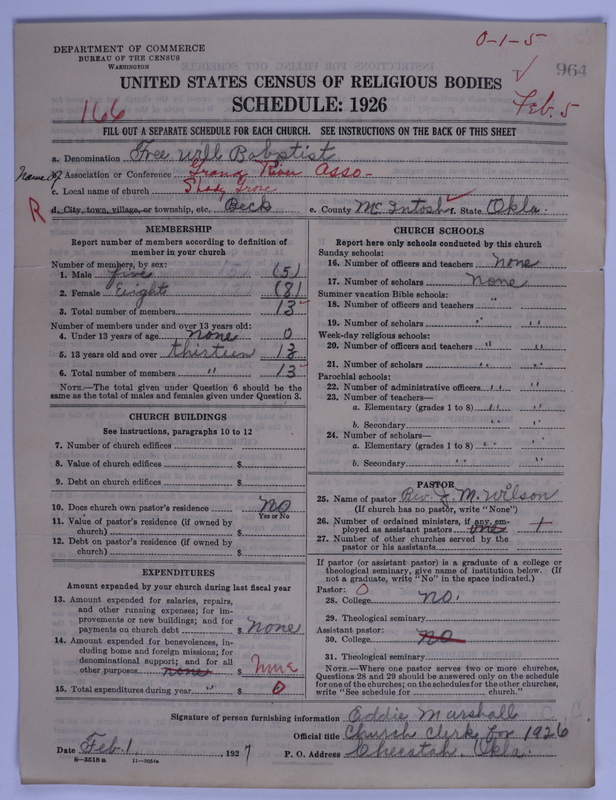 DEPARTMENT OF COMMERCE
BUREAU OF THE CENSUS
WASHINGTON
0-1-5
964
UNITED STATES CENSUS OF RELIGIOUS BODIES
166
SCHEDULE: 1926
Feb. 5
FILL OUT A SEPARATE SCHEDULE FOR EACH CHURCH. SEE INSTRUCTIONS ON THE BACK OF THIS SHEET
a. Denomination Free will Babptist
b. Association or Conference Grand River Asso-
c. Local name of church Shady Grove
R
d. City, town, village, or township, etc. Beck e. County McIntosh f. State Okla.
MEMBERSHIP
Report number of members according to definition of member in your church
Number of members, by sex:
1. Male five (5)
2. Female Eights (8)
3. Total number of members 13
Number of members under and over 13 years old:
4. Under 13 years of age none 0
5. 13 years old and over thirteen 13
6. Total number of members " 13
NOTE.—The total given under Question 6 should be the same as the total of males and females given under Question 3.
CHURCH BUILDINGS
See instructions, paragraphs 10 to 12
7. Number of church edifices
8. Value of church edifices $
9. Debt on church edifices $
10. Does church own pastor's residence no
Yes or No
11. Value of pastor's residence (if owned by church) $
12. Debt on pastor's residence (if owned by church) $
EXPENDITURES
Amount expended by your church during last fiscal year
13. Amount expended for salaries, repairs, and other running expenses; for improvements or new buildings; and for payments on church debt $ none
14. Amount expended for benevolences, including home and foreign missions; for denominational support; and for all other purposes none $ none
15. Total expenditures during year " $ 0
CHURCH SCHOOLS
Report here only schools conducted by this church
Sunday schools:
16. Number of officers and teachers none
17. Number of scholars none
Summer vacation Bible schools:
18. Number of officers and teachers "
19. Number of scholars " "
Week-day religious schools:
20. Number of officers and teachers " "
21. Number of scholars " "
Parochial schools:
22. Number of administrative officers " "
23. Number of teachers—
a. Elementary (grades 1 to 8) " "
b. Secondary " "
24. Number of scholars—
a. Elementary (grades 1 to 8) " "
b. Secondary " "
PASTOR
25. Name of pastor Rev. J. M. Wilson
(If church has no pastor, write "None")
26. Number of ordained ministers, if any, employed as assistant pastors one
27. Number of other churches served by the pastor or his assistants
If pastor (or assistant pastor) is a graduate of a college or theological seminary, give name of institution below. (If not a graduate, write "No" in the space indicated.)
Pastor: 0
28. College no.
29. Theological seminary
Assistant pastor:
30. College no
31. Theological seminary
NOTE.—Where one pastor serves two or more churches, Questions 28 and 29 should be answered only on the schedule for one of the churches; on the schedules for the other churches, write "See schedule for church."
Signature of person furnishing information Eddie Marshall
Official title Church clerk for 1926
Date Feb. 1, 1927 P. O. Address Checotah, Okla.
8—5518 a 11—9054a